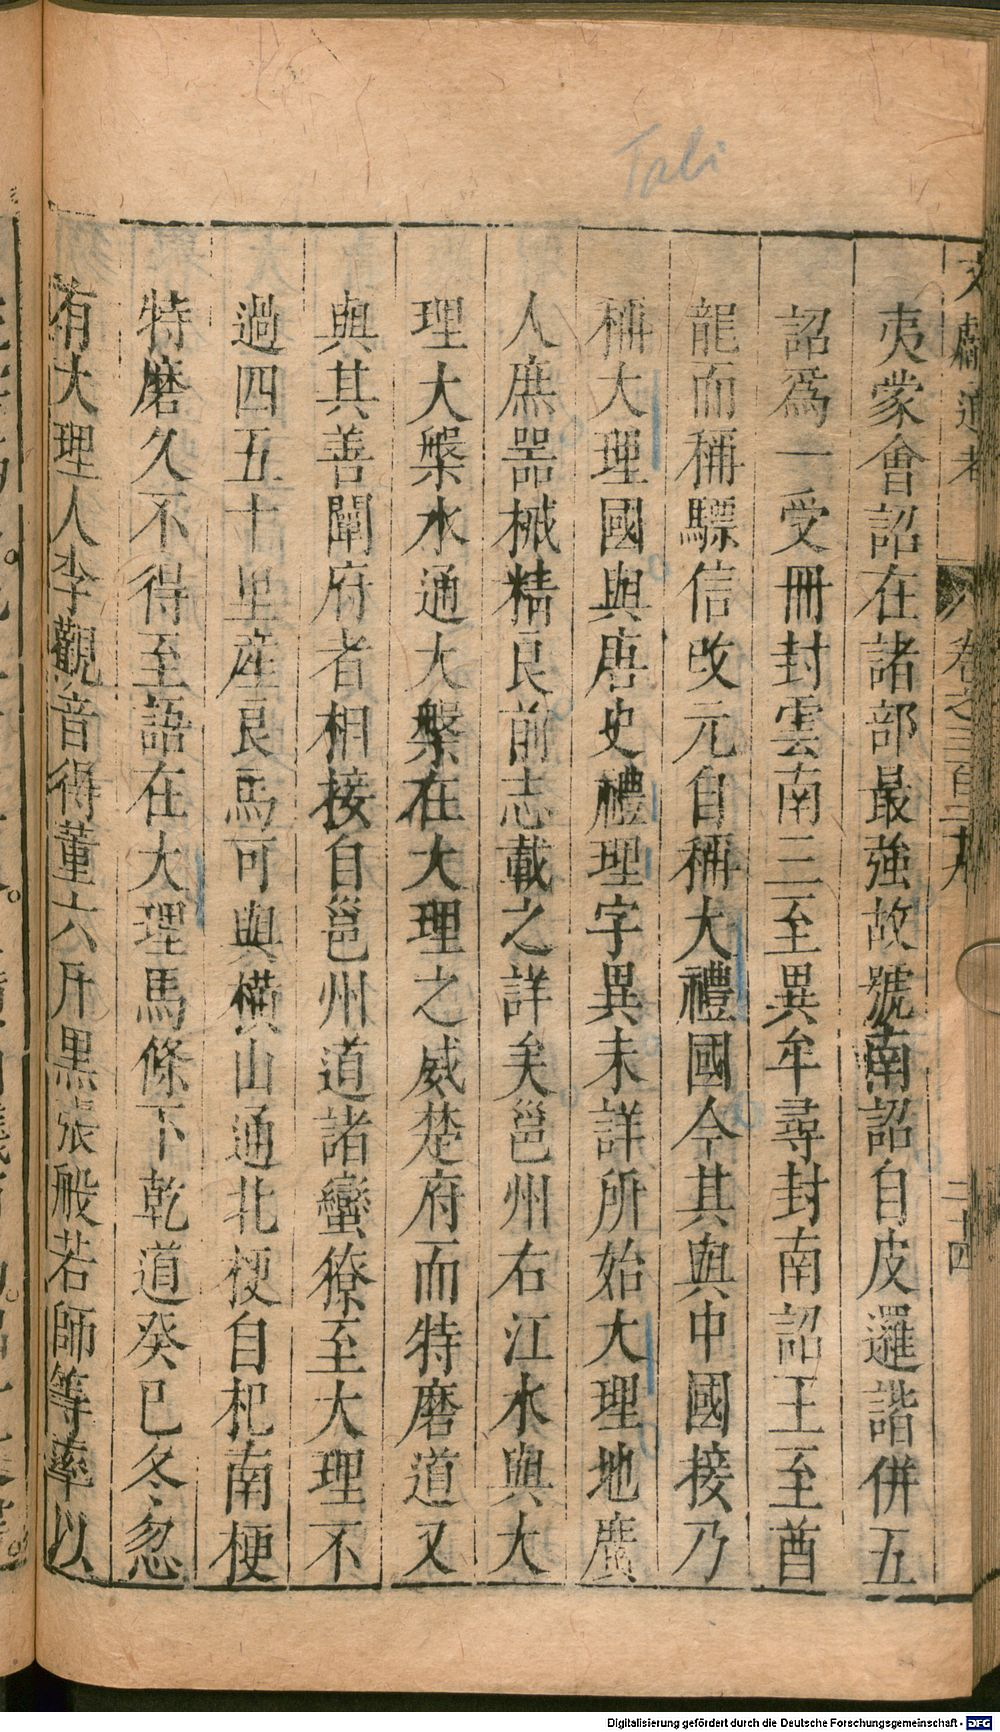 Tali
文獻通考 卷之三百二十九 二十四
夷蒙會詔在諸部最強故號南詔自皮邏諧併五
詔爲一受冊封雲南三至異牟尋封南詔王至酋
龍而稱驃信改元自稱大禮國今其與中國接乃
稱大理國與唐史禮理字異未詳所始大理地廣
人庶噐械精良前志載之詳矣邕州右江水與大
理大槃水通大槃在大理之威楚府而特磨道又
與其善闡府者相接自邕州道諸蠻獠至大理不
過四五十里産良馬可與橫山通北梗自杞南梗
特磨久不得至語在大理馬條下乾道癸巳冬忽
有大理人李觀音得董六斤黒張般若師等率以
Digitalisierung gefördert durch die Deutsche Forschungsgemeinschaft - DFG